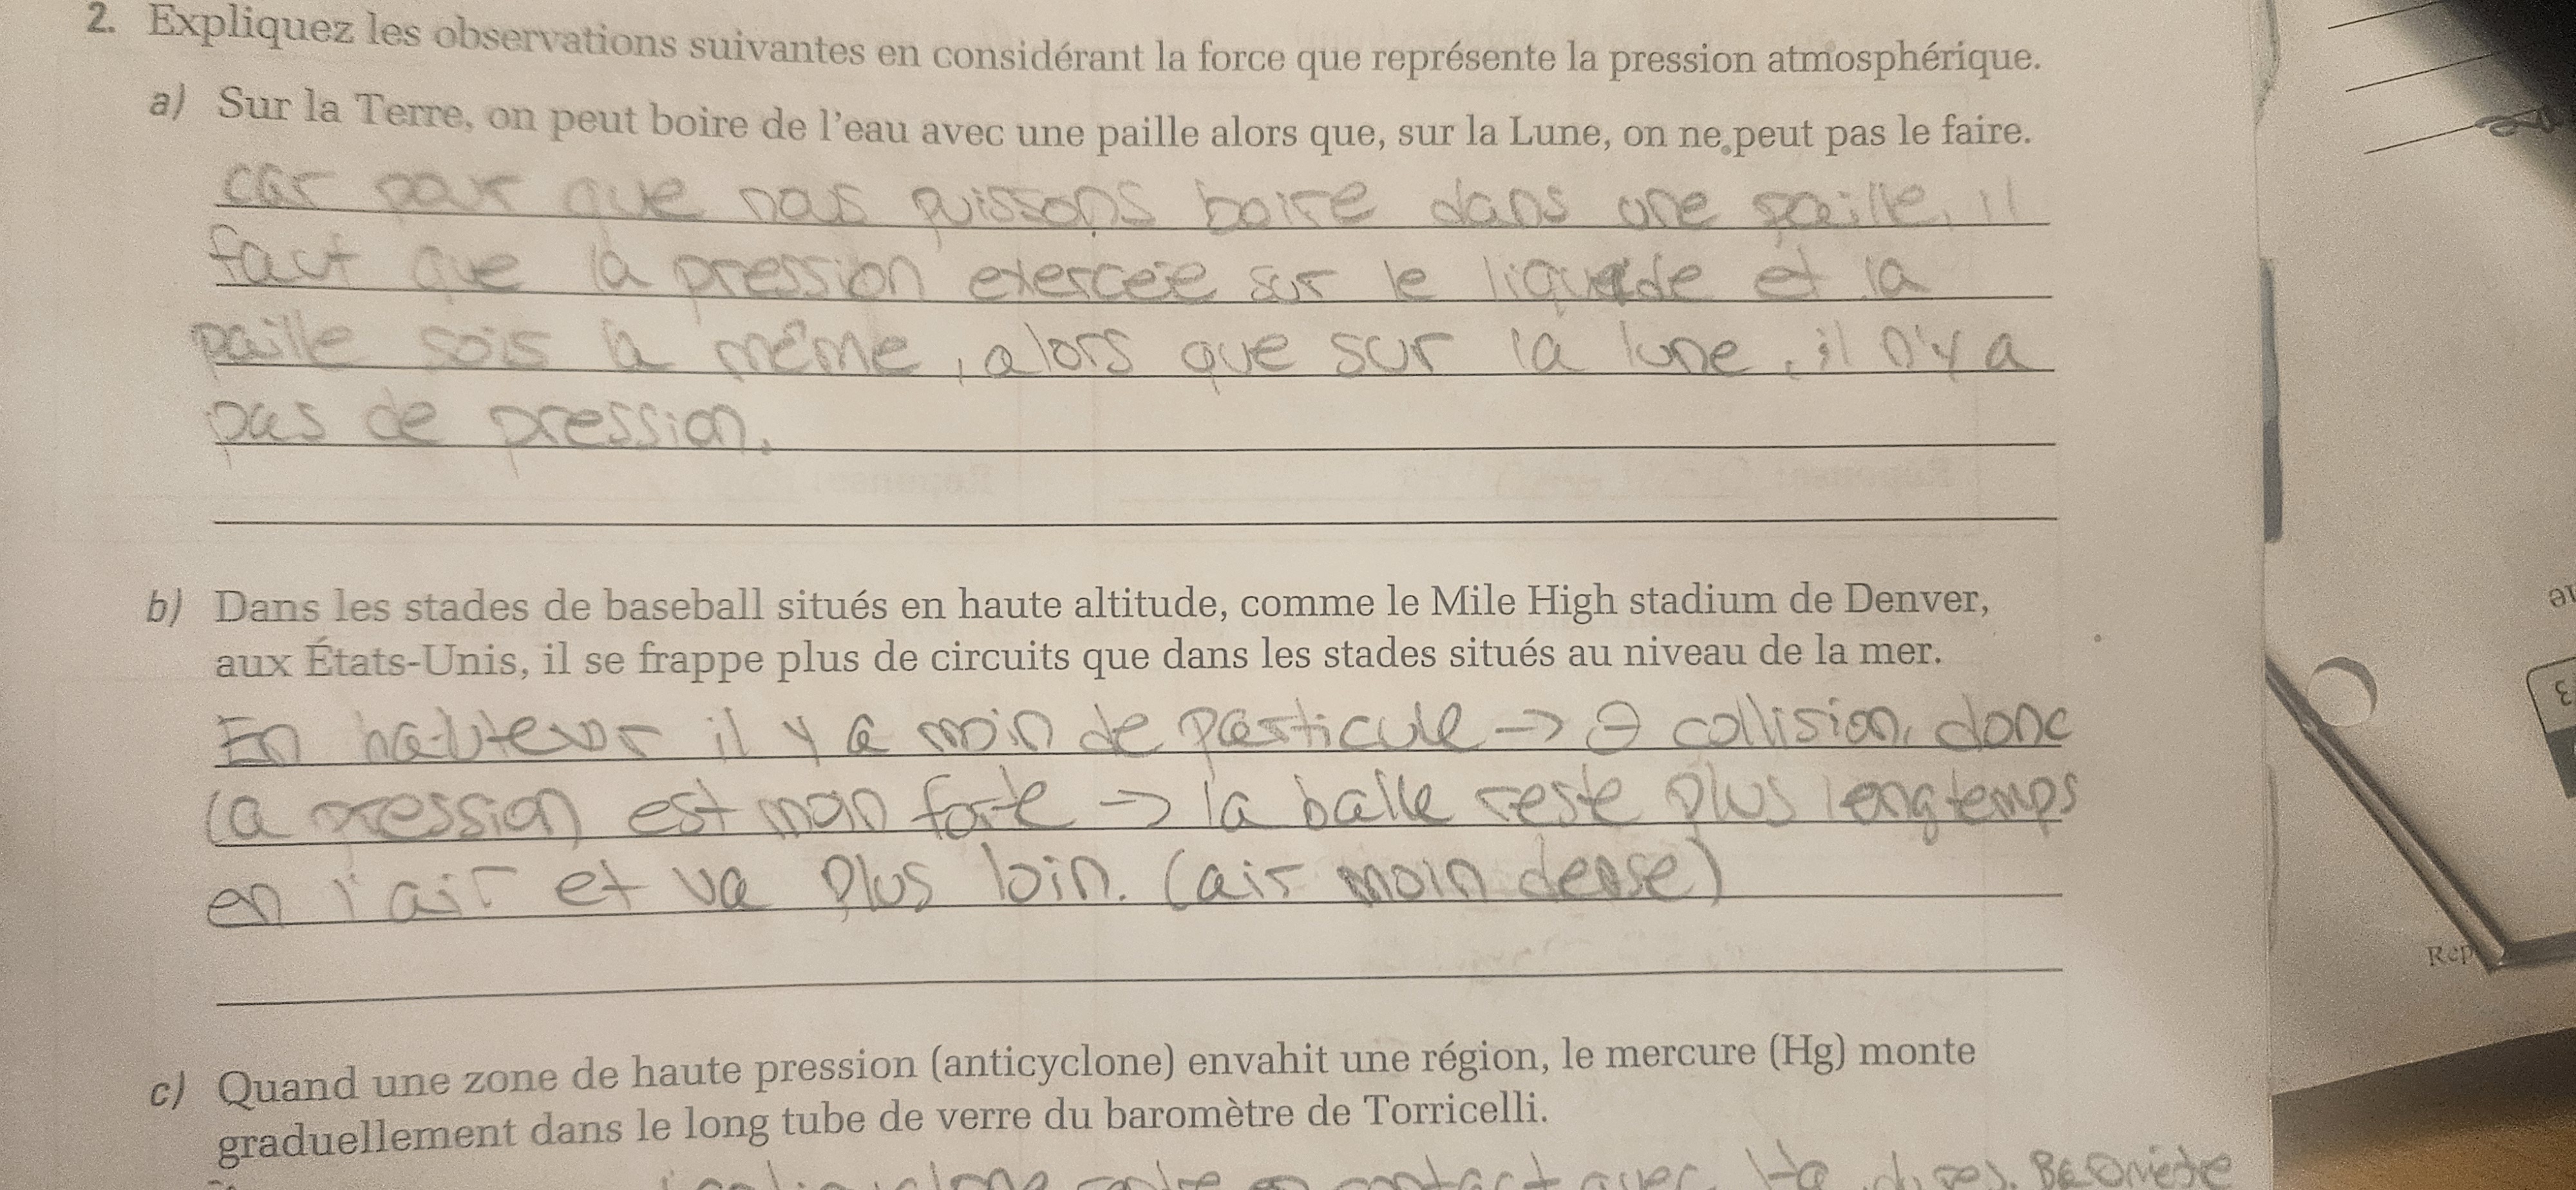 2. Expliquez les observations suivantes en considérant la force que représente la pression atmosphérique.
a) Sur la Terre, on peut boire de l'eau avec une paille alors que, sur la Lune, on ne peut pas le faire.
car pour que nous puissons boire dans une paille, il
faut que la pression exercée sur le liquide et la
paille sois la même, alors que sur la lune, il n'y a
pas de pression.
b) Dans les stades de baseball situés en haute altitude, comme le Mile High stadium de Denver,
aux États-Unis, il se frappe plus de circuits que dans les stades situés au niveau de la mer.
En hauteur il y a moin de particule → ⊖ collision, donc
la pression est moin forte → la balle reste plus longtemps
en l'air et va plus loin. (air moin dense)
c) Quand une zone de haute pression (anticyclone) envahit une région, le mercure (Hg) monte
graduellement dans le long tube de verre du baromètre de Torricelli.
contact avec
Rép